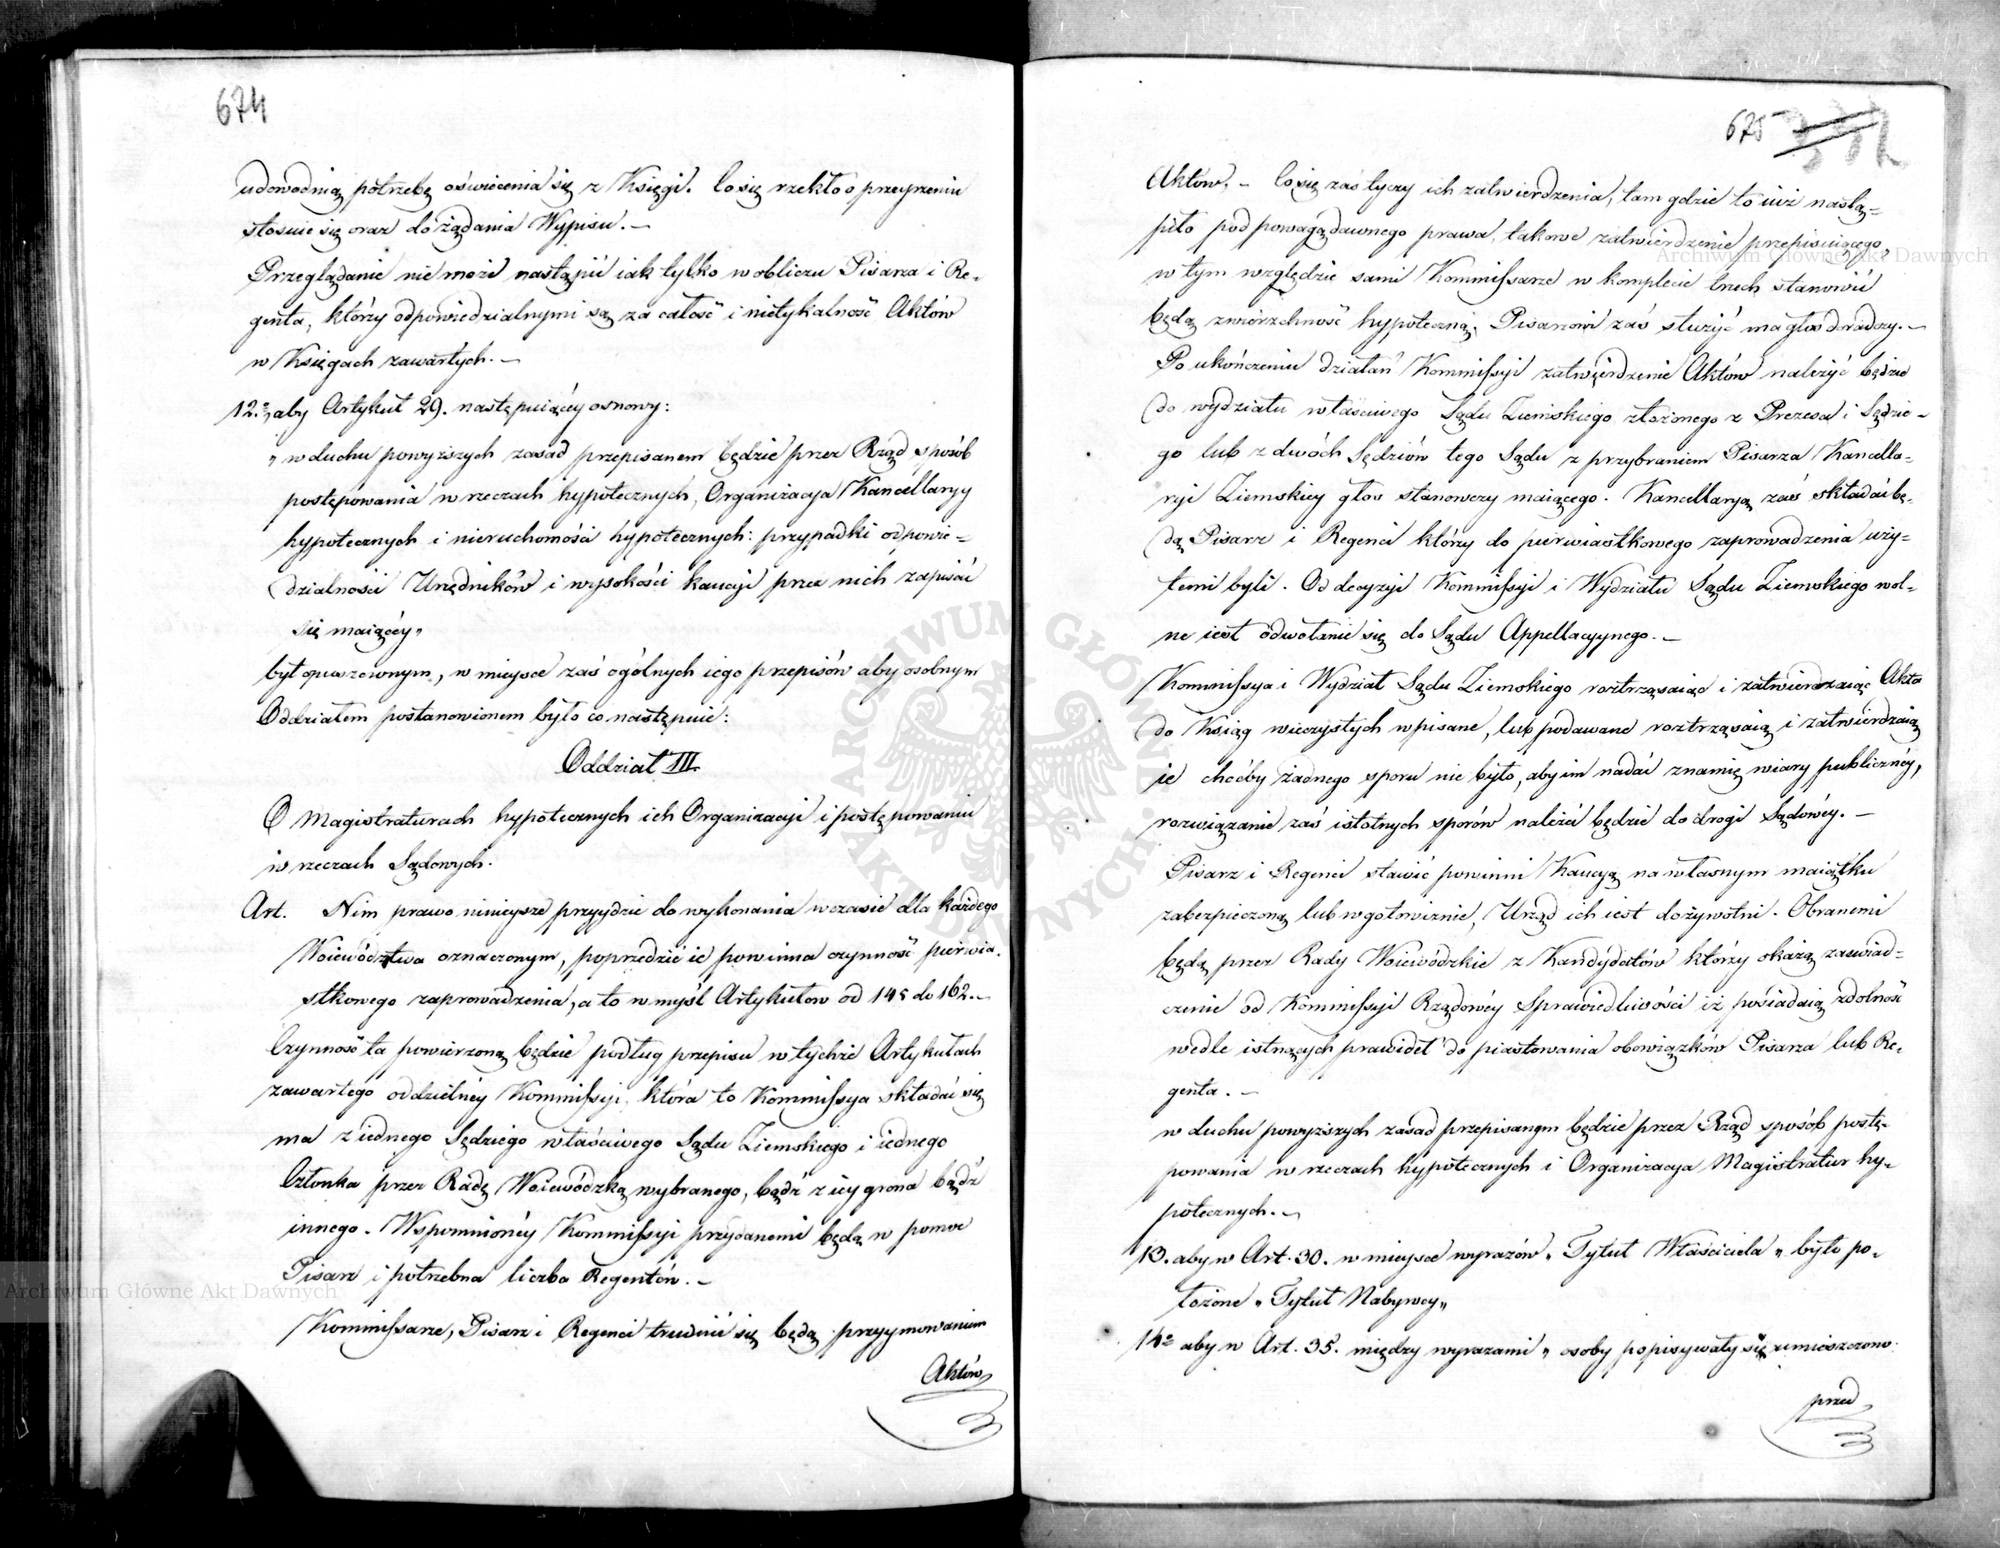 674
udowodnią potrzebę oświecenia się z Księgi. Co się rzekło o przeyrzeniu
stosuie się oraz do żądania Wypisu. —
Przeglądanie nie może nastąpić iak tylko w obliczu Pisarza i Re-
genta, którzy odpowiedzialnymi są za całość i nietykalność Aktów
w Księgach zawartych. —
12.o aby Artykuł 29. następuiącey osnowy:
„w duchu powyższych zasad przepisanem będzie przez Rząd sposób
postępowania w rzeczach hypotecznych, Organizacya Kancellaryy
hypotecznych i nieruchomości hypotecznych: przypadki odpowie-
dzialności Urzędników i wysokości kaucyi przez nich zapisać
się maiącéy„
był opuszczonym, w mieysce zaś ogólnych iego przepisów aby osobnym
Oddziałem postanowionem było co następuie:
Oddział III.
O Magistraturach hypotecznych ich Organizacyi i postępowaniu
w rzeczach Sądowych.
Art. Nim prawo ninieysze przyydzie do wykonania w czasie dla każdego
Woiewództwa oznaczonym, poprzedzić ie powinna czynność pierwia-
stkowego zaprowadzenia, a to w myśl Artykułów od 145 do 162. —
Czynność ta powierzoną będzie podług przepisu w tychże Artykułach
zawartego oddzielnéy Kommissyi, która to Kommissya składać się
ma z iednego Sędziego właściwego Sądu Ziemskiego i iednego
Członka przez Radę Woiewódzką wybranego, bądź z iey grona bądź
innego. Wspomnionéy Kommissyi przydanemi będą w pomoc
Pisarz i potrzebna liczba Regentów. —
Kommissarze, Pisarz i Regenci trudnić się będą przyymowaniem
Aktów
675
Aktów. — Co się zaś tyczy ich zatwierdzenia, tam gdzie to iuż nastą-
piło pod powagą dawnego prawa, takowe zatwierdzenie przepisuiącego
w tym względzie sami Kommissarze w komplecie trzech stanowić
będą zwierzchność hypoteczną, Pisarzowi zaś służyć ma głos doradczy. —
Po ukończeniu działań Kommissyi zatwierdzenie Aktów należyć będzie
do wydziału właściwego Sądu Ziemskiego złożonego z Prezesa i Sędzie-
go lub z dwóch Sędziów tego Sądu z przybraniem Pisarza Kancella-
ryi Ziemskiey głos stanowczy maiącego. Kancellaryą zaś składać bę-
dą Pisarz i Regenci którzy do pierwiastkowego zaprowadzenia uży-
temi byli. Od decyzyi Kommissyi i Wydziału Sądu Ziemskiego wol-
ne iest odwołanie się do Sądu Appellacyynego. —
Kommissya i Wydział Sądu Ziemskiego roztrząsaiąc i zatwierdzaiąc Akta
do Ksiąg wieczystych wpisane, lub podawane roztrząsaią i zatwierdzaią
ie choćby żadnego sporu nie było, aby im nadać znamię wiary publicznéy,
rozwiązanie zaś istotnych sporów należeć będzie do drogi Sądowéy. —
Pisarz i Regenci stawić powinni Kaucyą na własnym maiątku
zabezpieczoną lub w gotowiznie, Urząd ich iest dożywotni. Obranemi
będą przez Rady Woiewódzkie z Kandydatów którzy okażą zaświad-
czenie od Kommissyi Rządowéy Sprawiedliwości iż posiadaią zdolność
wedle istnących prawideł do piastowania obowiązków Pisarza lub Re-
genta. —
w duchu powyższych zasad przepisanym będzie przez Rząd sposób postę-
powania w rzeczach hypotecznych i Organizacya Magistratur hy-
potecznych. —
13. aby w Art. 30. w mieysce wyrazów „Tytuł Właściciela„ było po-
łożone „Tytuł Nabywcy„
14o aby w Art. 35. między wyrazami „osoby popisywały się umieszczono
przed
ARCHIWUM GŁÓWNE AKT DAWNYCH
Archiwum Główne Akt Dawnych
Archiwum Główne Akt Dawnych